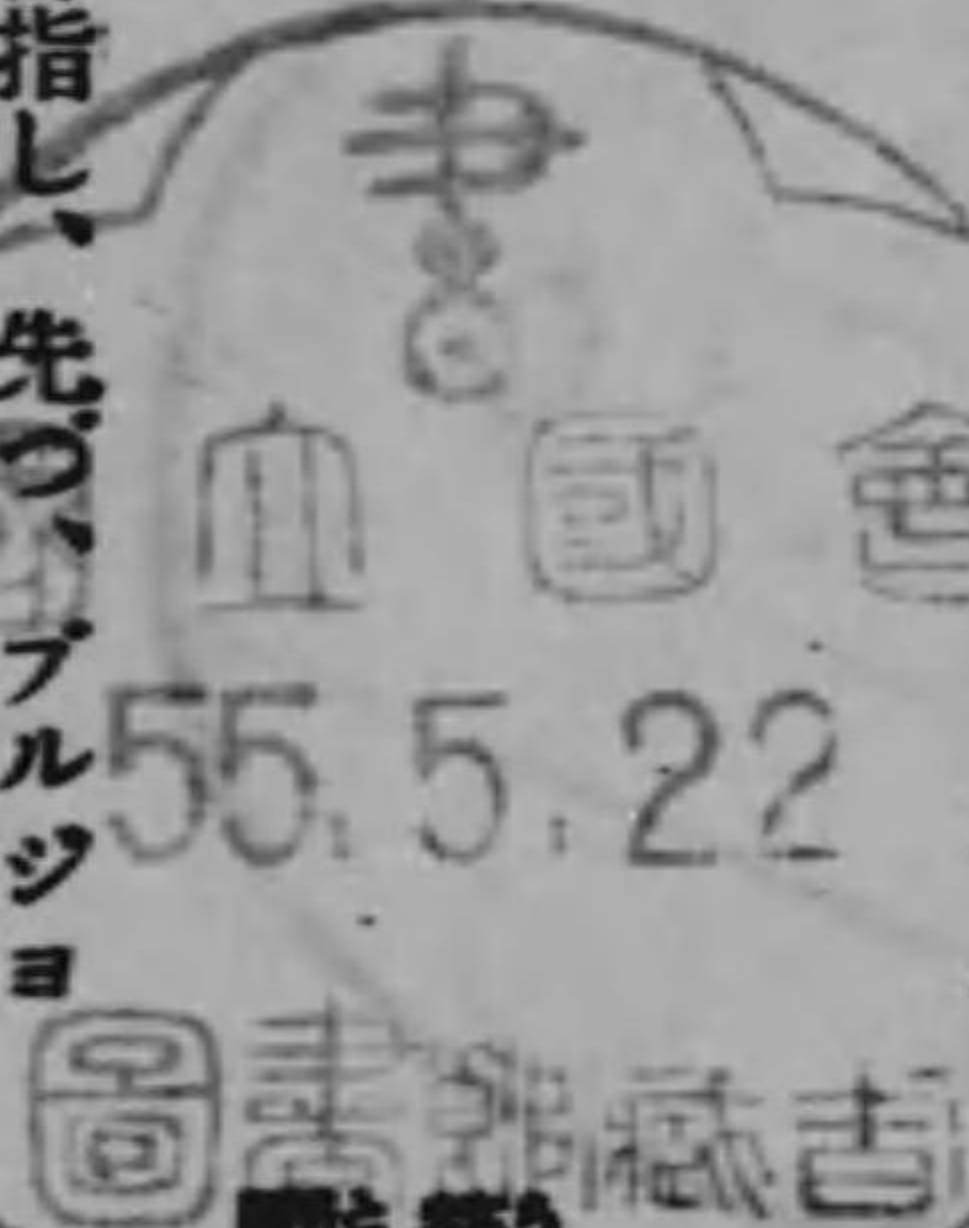 指し、先づ、ブルジョ
立國會
55.5.22
圖書館藏書